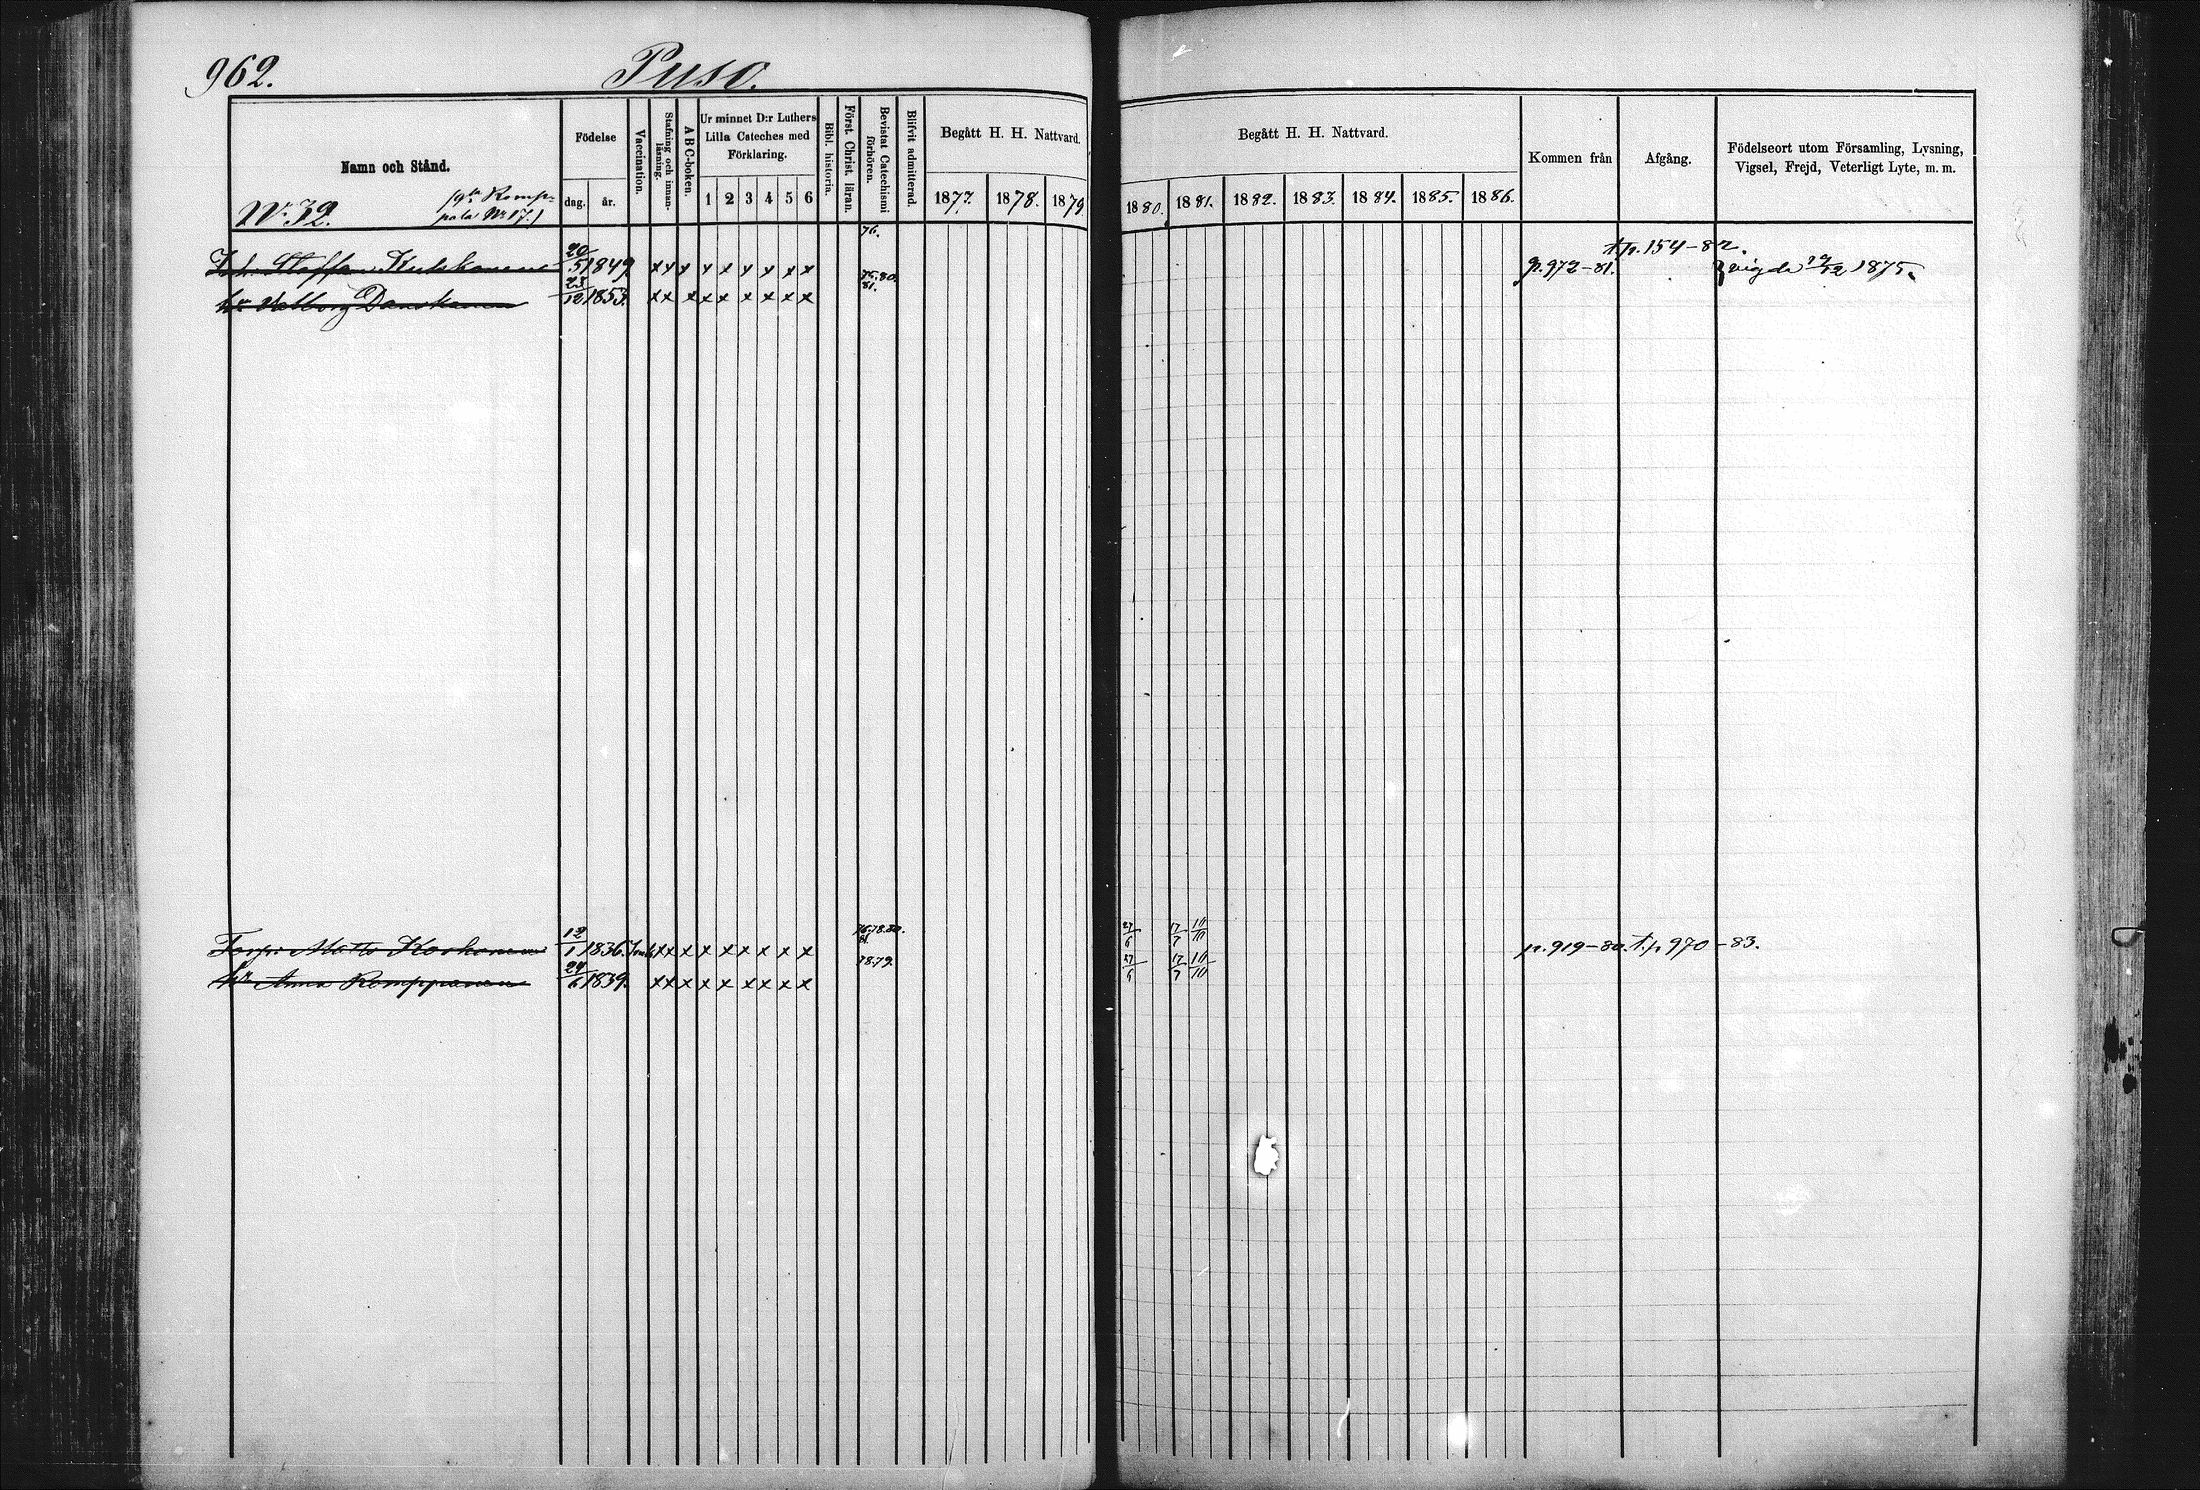 962. Puso.
Namn och Stånd.
Födelse
dag. år.
Vaccination.
Stafning och innanläsning.
ABC-boken.
Ur minnet D:r Luthers
Lilla Cateches med
Förklaring.
1 2 3 4 5 6
Bibl. historia.
Först. Christ. läran.
Bevistat Catechismi
förhören.
Blifvit admitterad.
Begått H. H. Nattvard.
1877. 1878. 1879.
Begått H. H. Nattvard.
1880. 1881. 1882. 1883. 1884. 1885. 1886.
Kommen från
Afgång.
Födelseort utom Församling, Lysning,
Vigsel, Frejd, Veterligt Lyte, m. m.
No 32. Romp-
pala No 17.)
76.
Staffan 20/5 1849 x x x x x x x x x p. 972-81. t. p. 154-82. vigda 1875.
75.80.
81.
hu Valborg Danskanen 23/12 1853. x x x x x x x x x
Matts Koskonen 12/1 1836. x x x x x x x x x 76.78.80. 81. 27/6 17/7 10/10 p. 919-80. t. p. 970-83.
hu Anna Romppanen 24/6 1839. x x x x x x x x x 78.79. 27/6 17/7 10/10